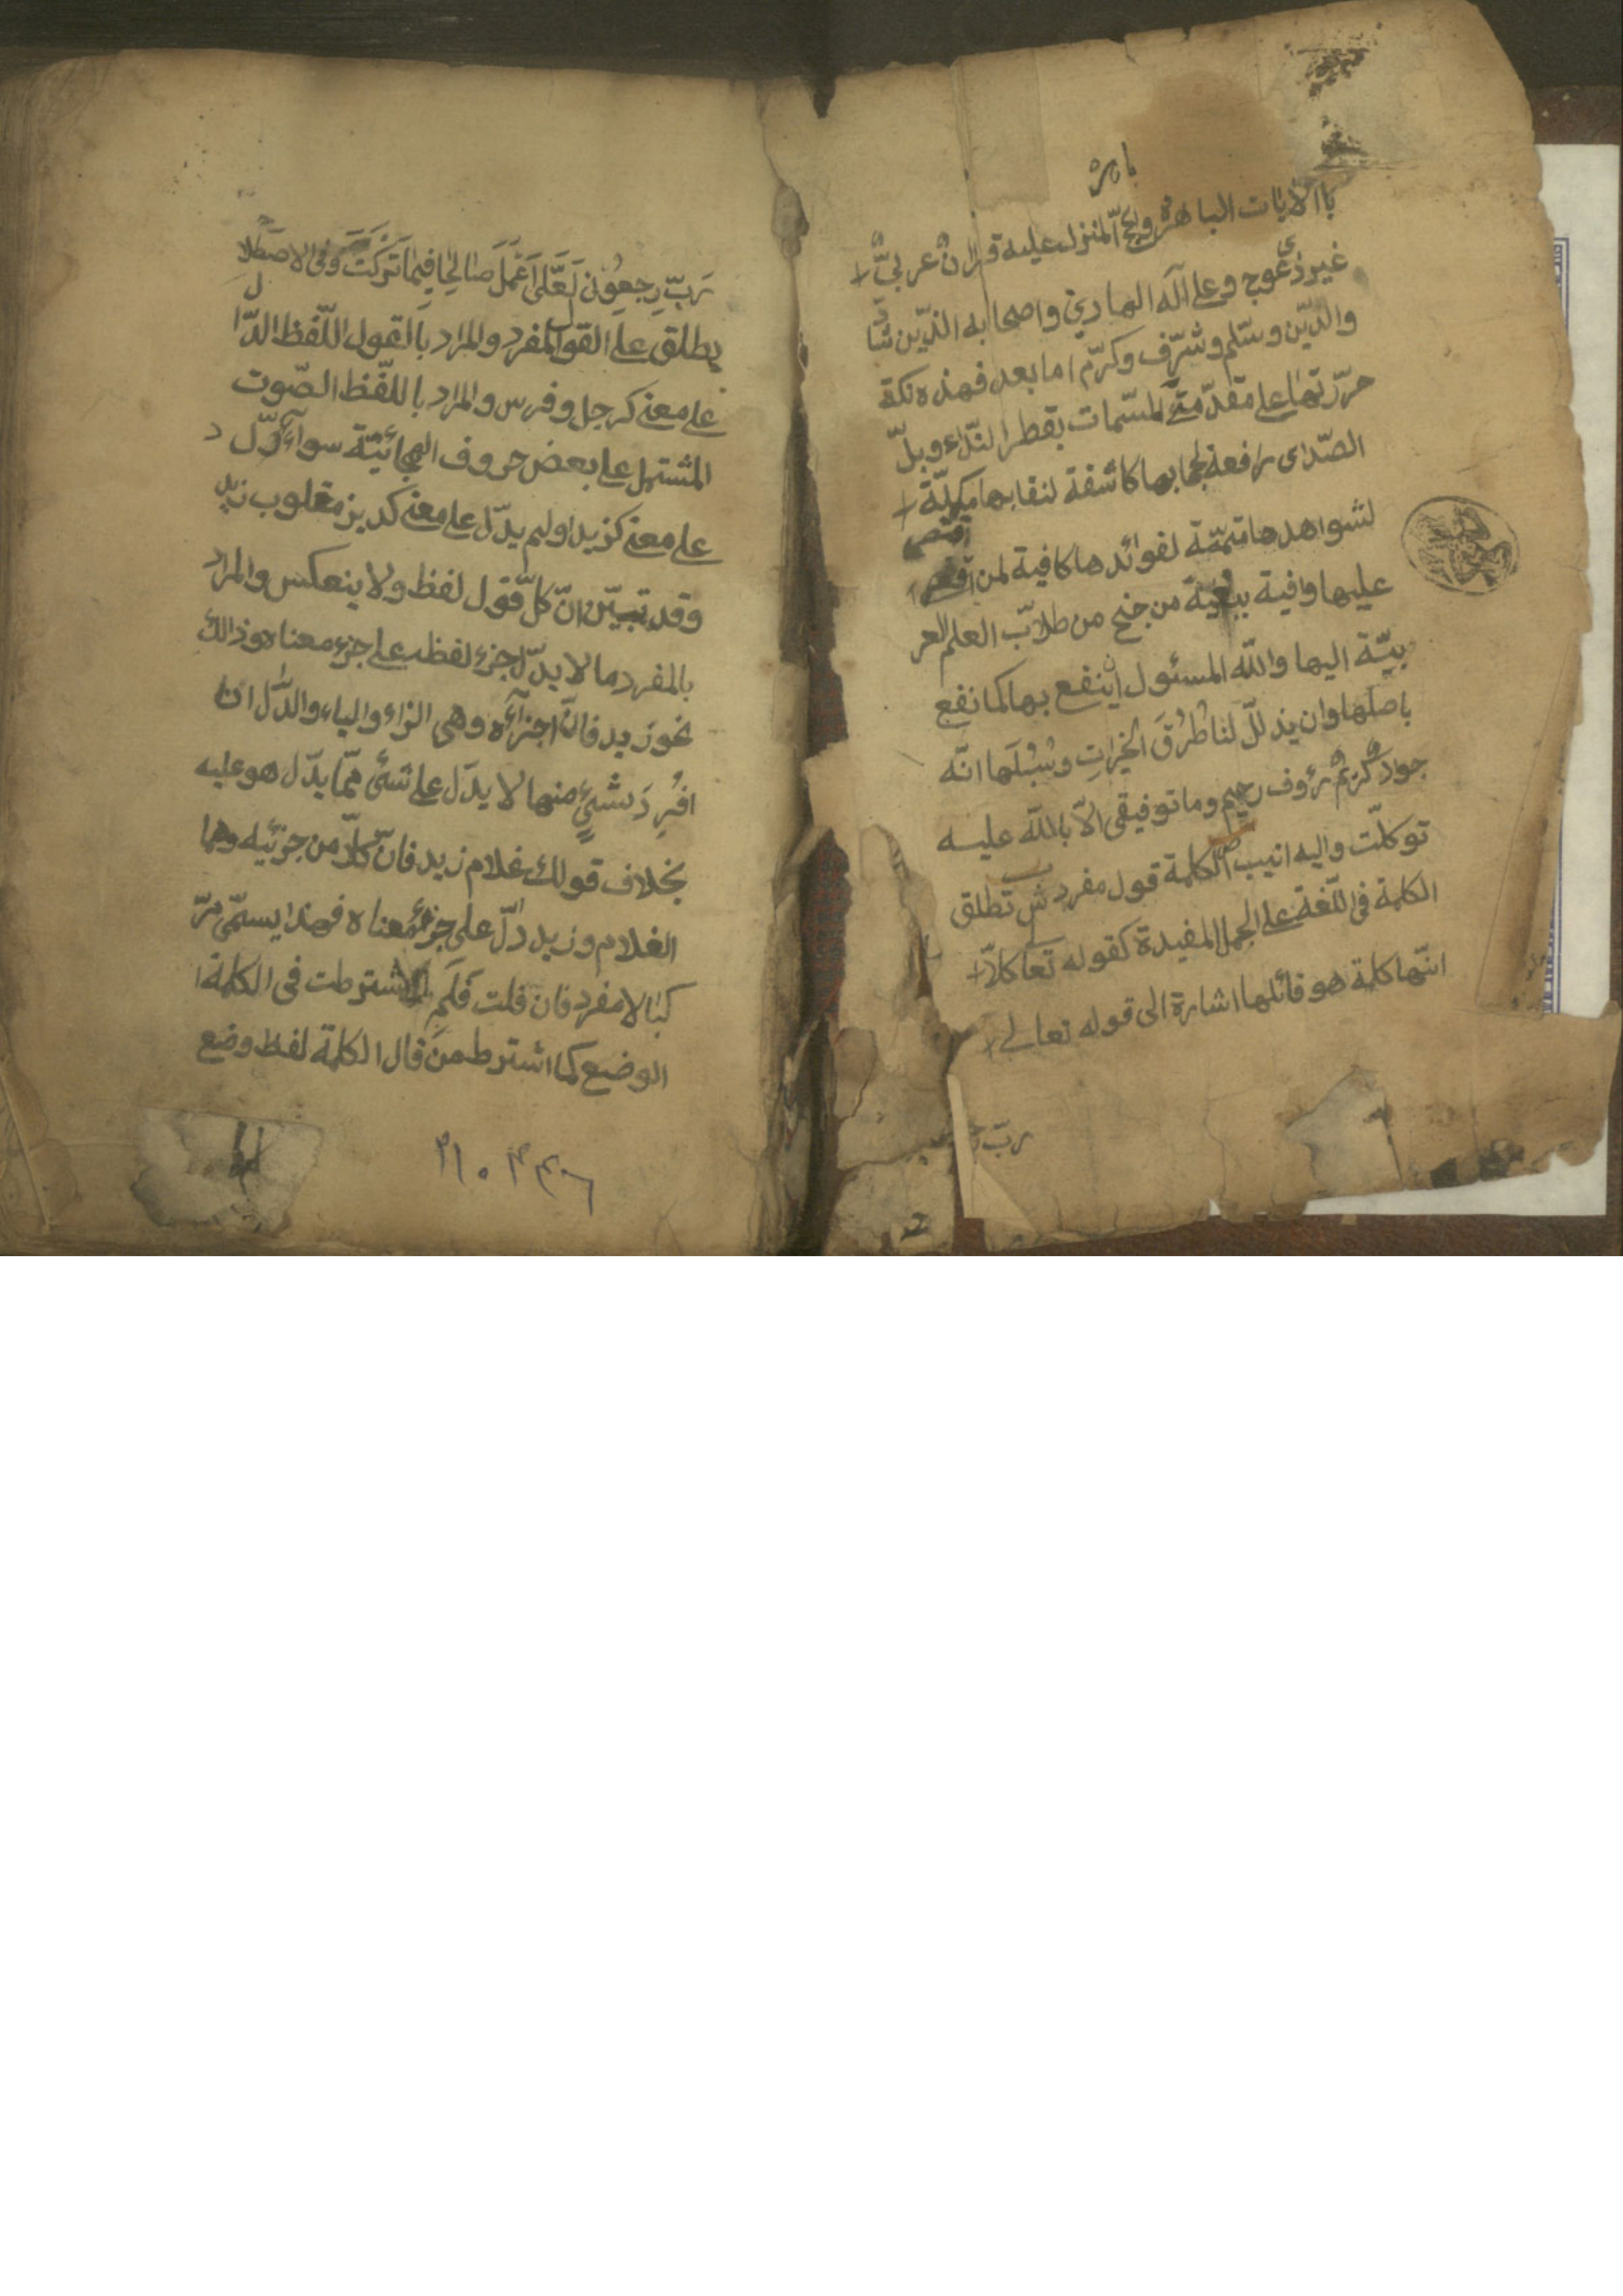 باهرة
باالايات الباهرة والحج المنزل عليه قران عربيّ
غير ذى عوج وعلى آله الهادين واصحابه الذّين شا
دّ
والدّين وسّلم وشرّف وكرّم اما بعد فهذه نكة
حرّرتها على مقدّمتى المسّمات بقطر النّداء وبلّ
الصّداى رافعة لحجابها كاشفة لنقابها مكمّلة
لشواهدها متمّمة لفوائدها كافية لمن اقتصر
اقتصر
عليها وافية ببغية من جنح من طلاّب العلم العر
بيّة اليها والله المسئول ان ينفع بها كما نفع
باصلها وان يذللّ لنا طُرُقَ الخيراتِ وسُبُلَها انّه
جوادٌ كريمٌ رؤوف رحيم وما توفيقى الاّ بالله عليه
توكلّت واليه انيب ص الكلمة قول مفرد ش تطلق
الكلمة فى اللّغة على الجمل المفيدة كقوله تعا كلاّ
انّها كلمة هو قائلها اشارة الى قوله تعالى
ربّ
2
رَبّ رجِعوُن لَعَّلى اَعْمَلَ صٰالِحًا فِيمٰا تَرَكْتَ وفى الاصطلا
ح
يطلق على القول المفرد والمراد بالقول اللّفظ الدّا
ل
على معنى كرجل وفرس والمراد باللّفظ الصّوت
المشتمل على بعض حروف الهجائيّة سواء دّل
على معنى كزيد اولم يدّل على معنى كديز مقلوب زيد
وقد تبيّن انّ كلّ قول لفظ ولا ينعكس والمراد
بالمفرد ما لا يدّل جزء لفظه على جزء معناه وذالك
نحو زيد فانّ اجزآءه وهى الزاء والياء والدّال اذا
افُرِدَ شئٍ منها لا يدّل على شئ ممّا يدّل هو عليه
بخلاف قولك غلام زيد فانّ كلاّ من جزئيه وهما
الغلام وزيد دالّ على جزء معناه فهذا يسمّى مرّ
كبا لا مفرد فان قلت فَلَمِ لا اشترطت فى الكلمة
الوضع كما اشترط من قال الكلمة لفظ وضع